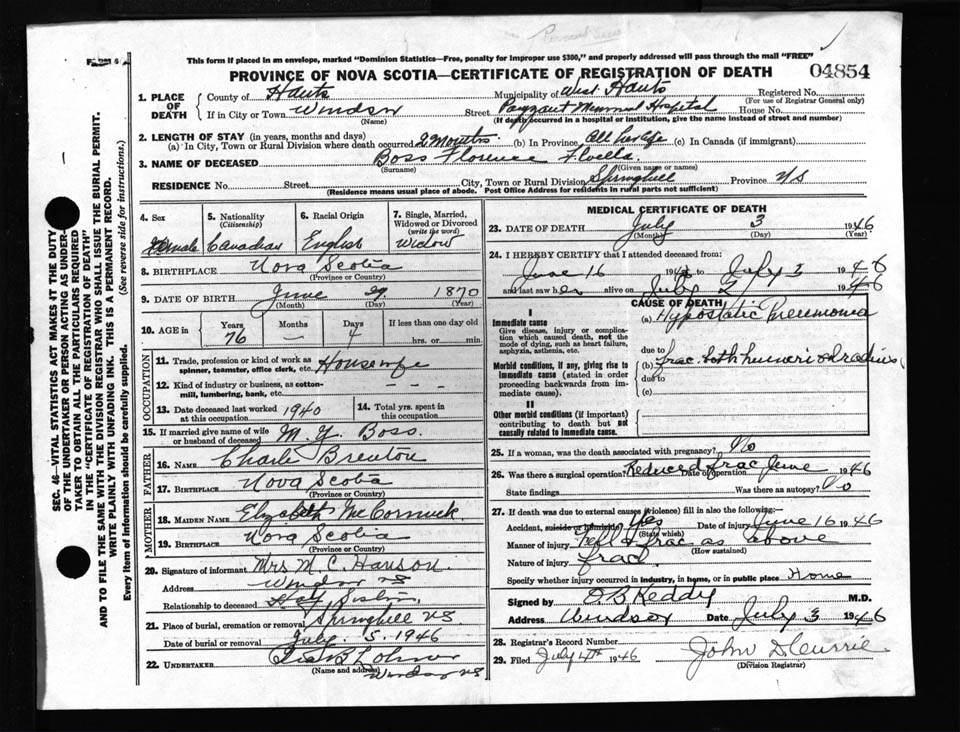 This form if placed in an envelope, marked "Dominion Statistics—Free, penalty for improper use $300," and properly addressed will pass through the mail "FREE"
PROVINCE OF NOVA SCOTIA—CERTIFICATE OF REGISTRATION OF DEATH 04854
1. PLACE OF DEATH County of Hants Municipality of West Hants Registered No.
(For use of Registrar General only)
If in City or Town Windsor Street Payzant Memorial Hospital House No.
(Name) (If death occurred in a hospital or institution, give the name instead of street and number)
2. LENGTH OF STAY (in years, months and days)
(a) In City, Town or Rural Division where death occurred 2 Months (b) In Province All her life (c) In Canada (if immigrant)
3. NAME OF DECEASED Boss Florence
(Surname) (Given name or names)
RESIDENCE No. Street City, Town or Rural Division Springhill Province NS
(Residence means usual place of abode. Post Office Address for residents in rural parts not sufficient)
4. Sex 5. Nationality (Citizenship) 6. Racial Origin 7. Single, Married, Widowed or Divorced (write the word)
Female Canadian English Widow
8. BIRTHPLACE Nova Scotia
(Province or Country)
9. DATE OF BIRTH June 29 1870
(Month) (Day) (Year)
10. AGE in Years Months Days If less than one day old
76 — 4 hrs. or min.
OCCUPATION
11. Trade, profession or kind of work as spinner, teamster, office clerk, etc. Housewife
12. Kind of industry or business, as cotton-mill, lumbering, bank, etc. — — —
13. Date deceased last worked at this occupation 1940 14. Total yrs. spent in this occupation
15. If married give name of wife or husband of deceased M. Y. Boss
FATHER
16. NAME Charls Brenton
17. BIRTHPLACE Nova Scotia
(Province or Country)
MOTHER
18. MAIDEN NAME Elizabeth McCormick
19. BIRTHPLACE Nova Scotia
(Province or Country)
20. Signature of informant Mrs M. C. Hanson
Address Windsor NS
Relationship to deceased Half Sister
21. Place of burial, cremation or removal Springhill NS
Date of burial or removal July 5. 1946
22. UNDERTAKER
(Name and address) Windsor NS
MEDICAL CERTIFICATE OF DEATH
23. DATE OF DEATH July 3 1946
(Month) (Day) (Year)
24. I HEREBY CERTIFY that I attended deceased from:
June 16 1946 to July 3 1946
and last saw her alive on July 2 1946
CAUSE OF DEATH
I
Immediate cause (a) Hypostatic Pneumonia
Give disease, injury or complication which caused death, not the mode of dying, such as heart failure, asphyxia, asthenia, etc.
due to
Morbid conditions, if any, giving rise to immediate cause (stated in order proceeding backwards from immediate cause). (b) frac. both humeri
due to
(c)
II
Other morbid conditions (if important) contributing to death but not causally related to immediate cause.
25. If a woman, was the death associated with pregnancy? No
26. Was there a surgical operation? Reduced frac Date of operation June 1946
State findings Was there an autopsy? No
27. If death was due to external causes (violence) fill in also the following:—
Accident, suicide or homicide? Yes Date of injury June 16 1946
(State which)
Manner of injury Fell & frac as above
(How sustained)
Nature of injury frac.
Specify whether injury occurred in industry, in home, or in public place Home
Signed by D. B Reddy M.D.
Address Windsor Date July 3 1946
28. Registrar's Record Number
29. Filed July 4th 1946 John D Currie
(Division Registrar)
SEC. 46—VITAL STATISTICS ACT MAKES IT THE DUTY OF THE UNDERTAKER OR PERSON ACTING AS UNDERTAKER TO OBTAIN ALL THE PARTICULARS REQUIRED IN THE "CERTIFICATE OF REGISTRATION OF DEATH" AND TO FILE THE SAME WITH THE DIVISION REGISTRAR WHO SHALL ISSUE THE BURIAL PERMIT.
WRITE PLAINLY WITH UNFADING INK. THIS IS A PERMANENT RECORD.
Every item of information should be carefully supplied. (See reverse side for instructions.)